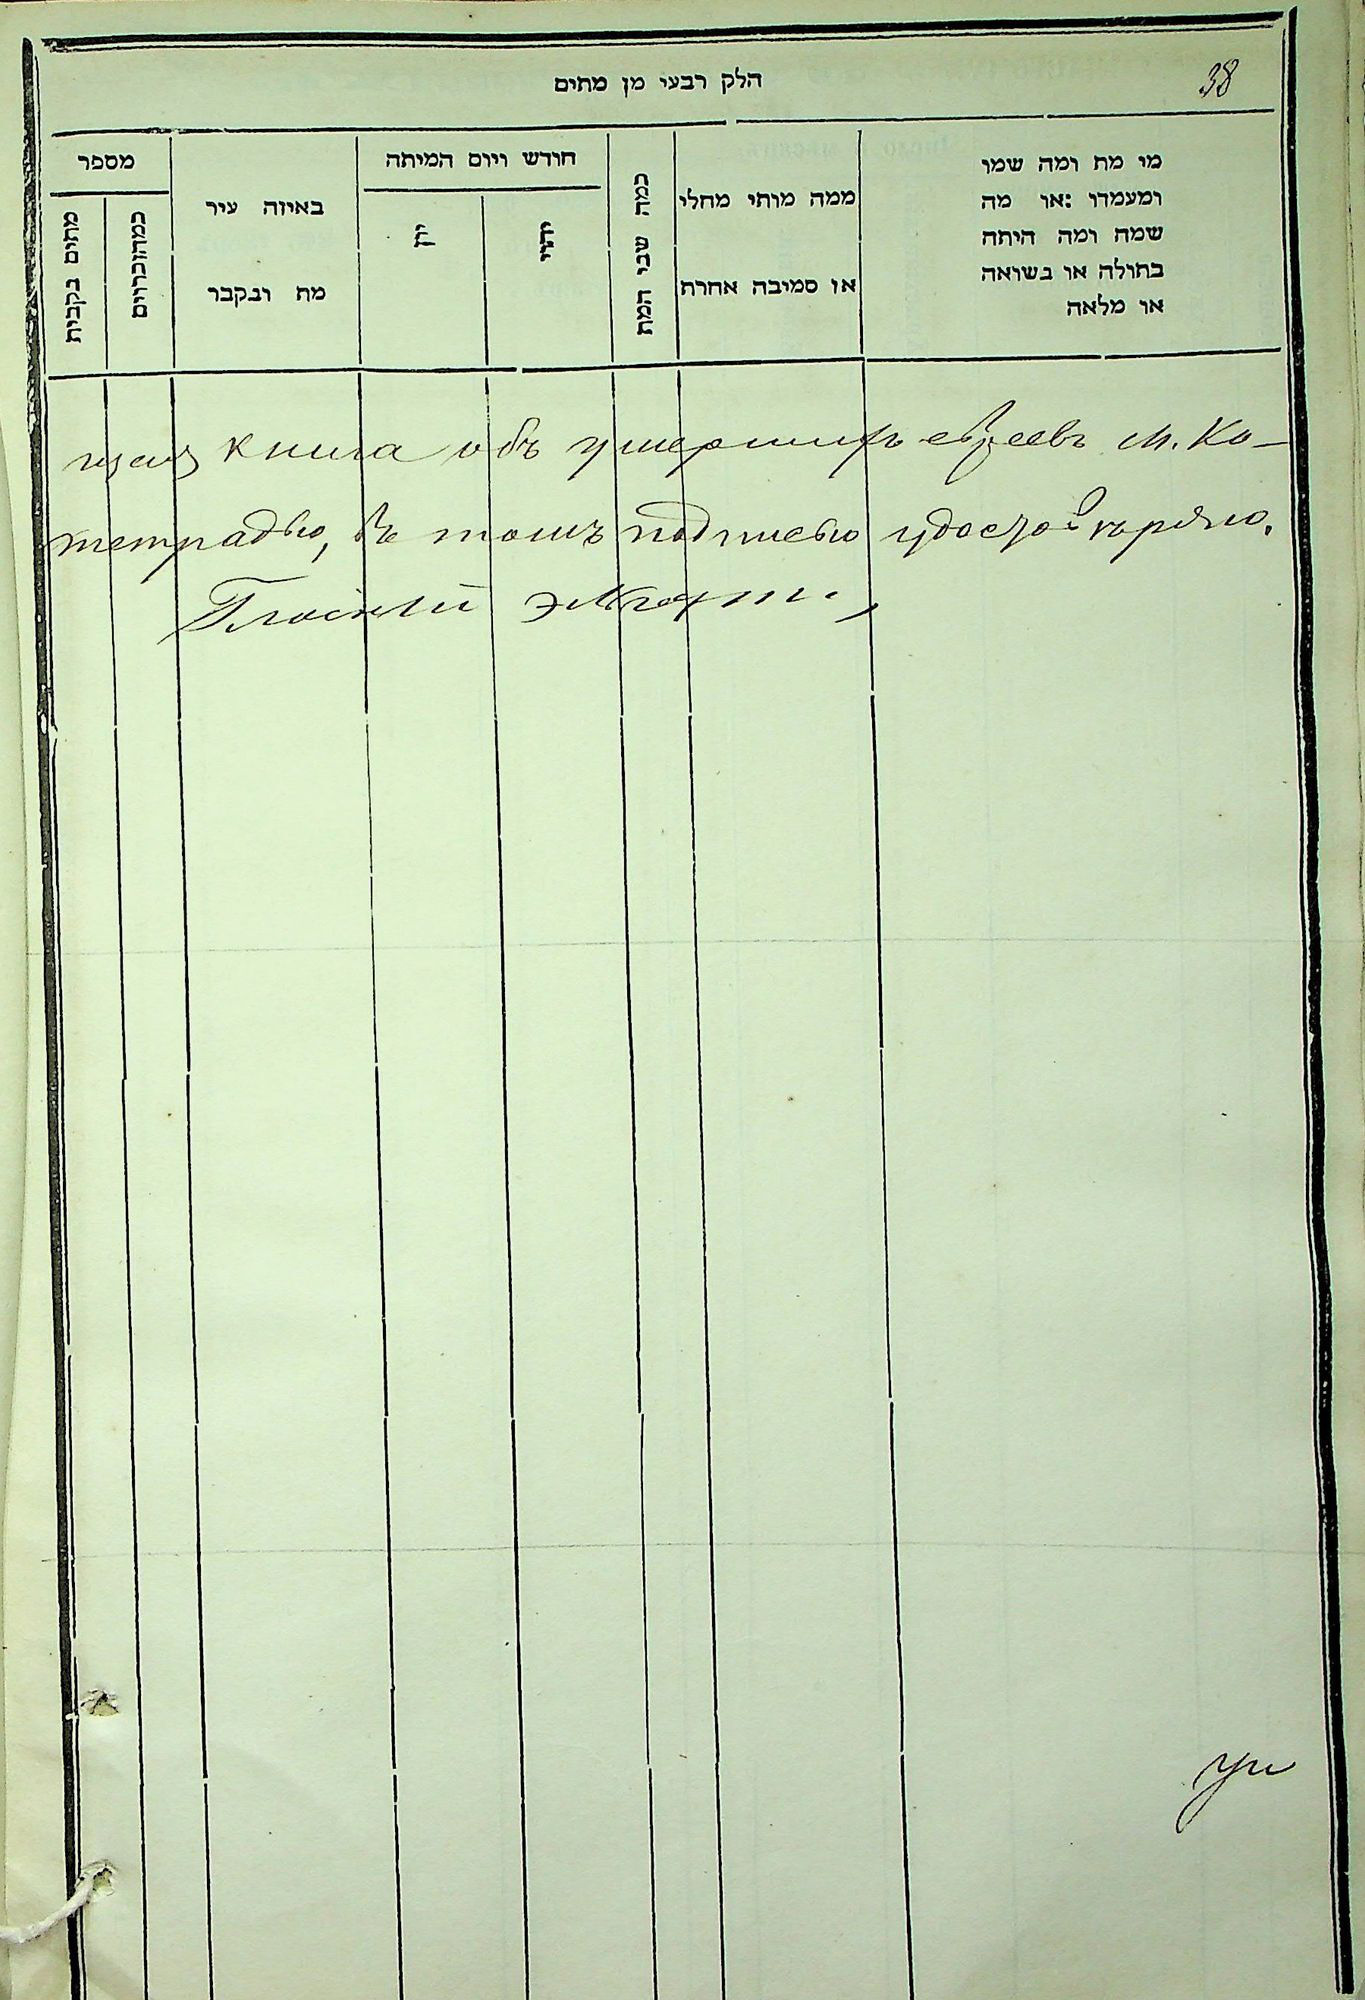 38
הלק רבעי מן מתים
מי מת ומה שמו
ומעמדו :או מה
שמה ומה היתה
בתולה או בשואה
או מלאה
ממה מותי מחלי
או סמיבה אחרת
כמה שני המת
חודש ויום המיתה
יהודי
יון
באיזה עיר
מת ונקבר
מספר
כמהזכרים
מתים נקבית
книга объ умершихъ евреевъ м. Ко-
тетрадью, въ томъ подписью удостовѣряю.
Гласный